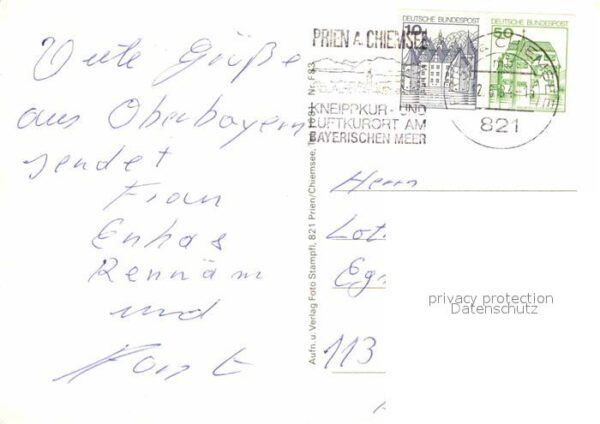 Viele Grüße
aus Oberbayern
sendet
Frau
und
Horst
PRIEN A. CHIEMSEE
KNEIPPKUR- UND
LUFTKURORT AM
BAYERISCHEN MEER
DEUTSCHE BUNDESPOST
10
DEUTSCHE BUNDESPOST
50
821
Aufn. u. Verlag Foto Stampfl, 821 Prien/Chiemsee,
Herrn
Lot
113
privacy protection
Datenschutz